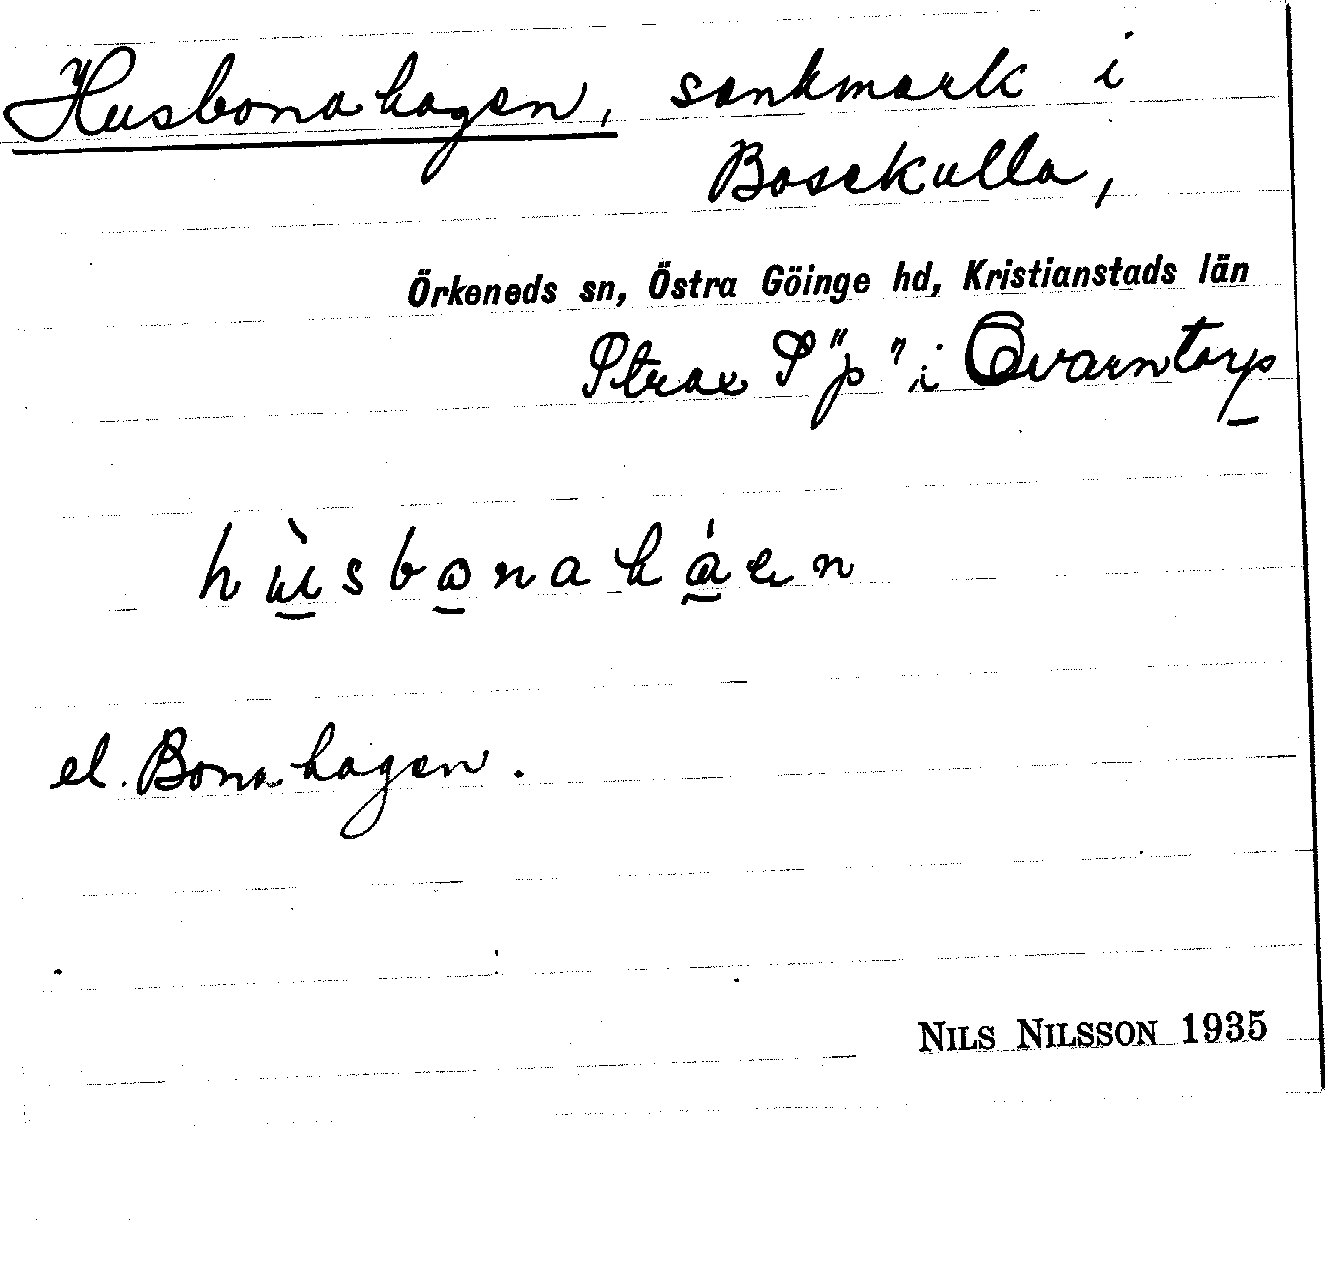 Husbonahagen, sankmark i
Bosekulla,
Örkeneds sn, Östra Göinge hd, Kristianstads län
Strax S "p" i Qvarntorp
hùsbonahåen
el. Bonahagen.
NILS NILSSON 1935